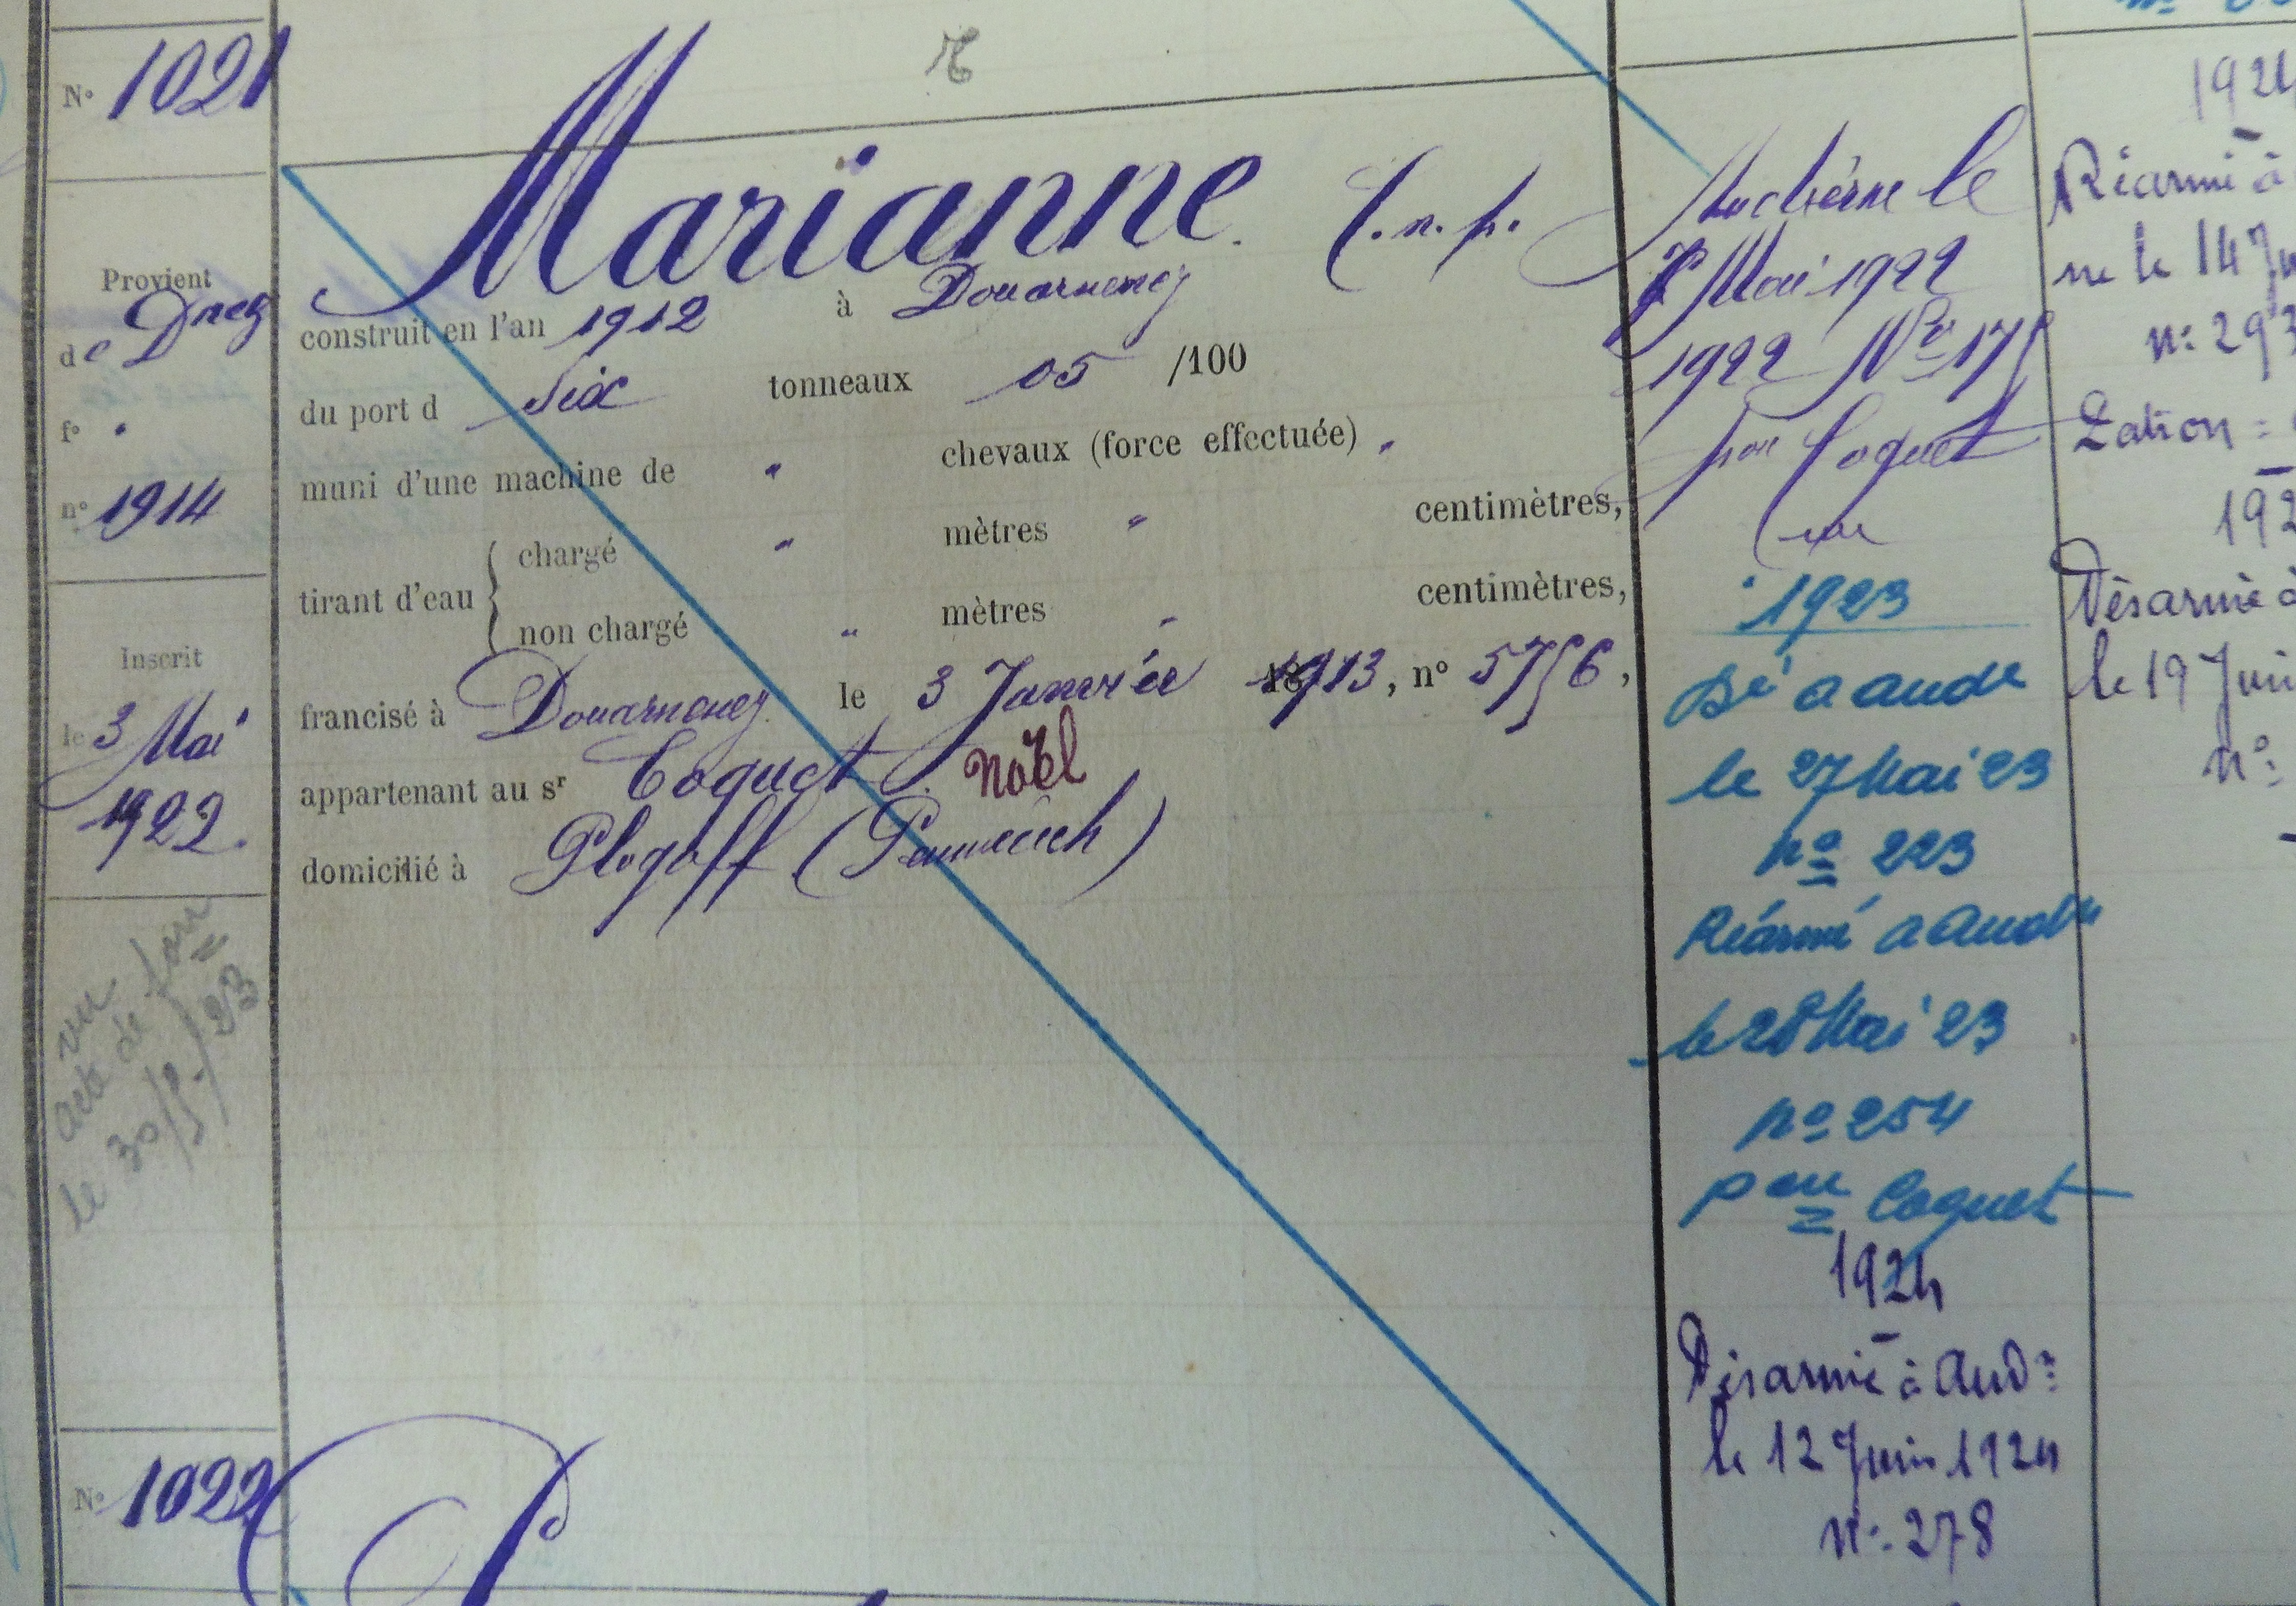 N° 1021
Provient
de Dnez
f° "
n° 1914
Inscrit
le 3 Mai
1922.
vu
acte de
le 30/5/23
Marianne.
construit en l'an 1912 à Douarnenez
du port d Six tonneaux 05 /100
muni d'une machine de " chevaux (force effectuée) "
tirant d'eau { chargé " mètres " centimètres,
non chargé " mètres " centimètres,
francisé à Douarnenez le 3 Janvier 1913, n° 5756,
appartenant au sr Coquet Noël
domicilié à Plogoff (
Audierne le
Mai 1922
1922 N°
par Coquet
1923
Dé a aude
le 27 Mai 23
n° 223
Réarmé a Aude
le 28 Mai 23
n° 254
par Coquet
1924
Désarmé à Aud
le 12 Juin 1924
n° 278
192
Réarmé à
ne le 14 Ju
n° 293
192
Désarmé à
le 19 Juin
n°
N° 1022